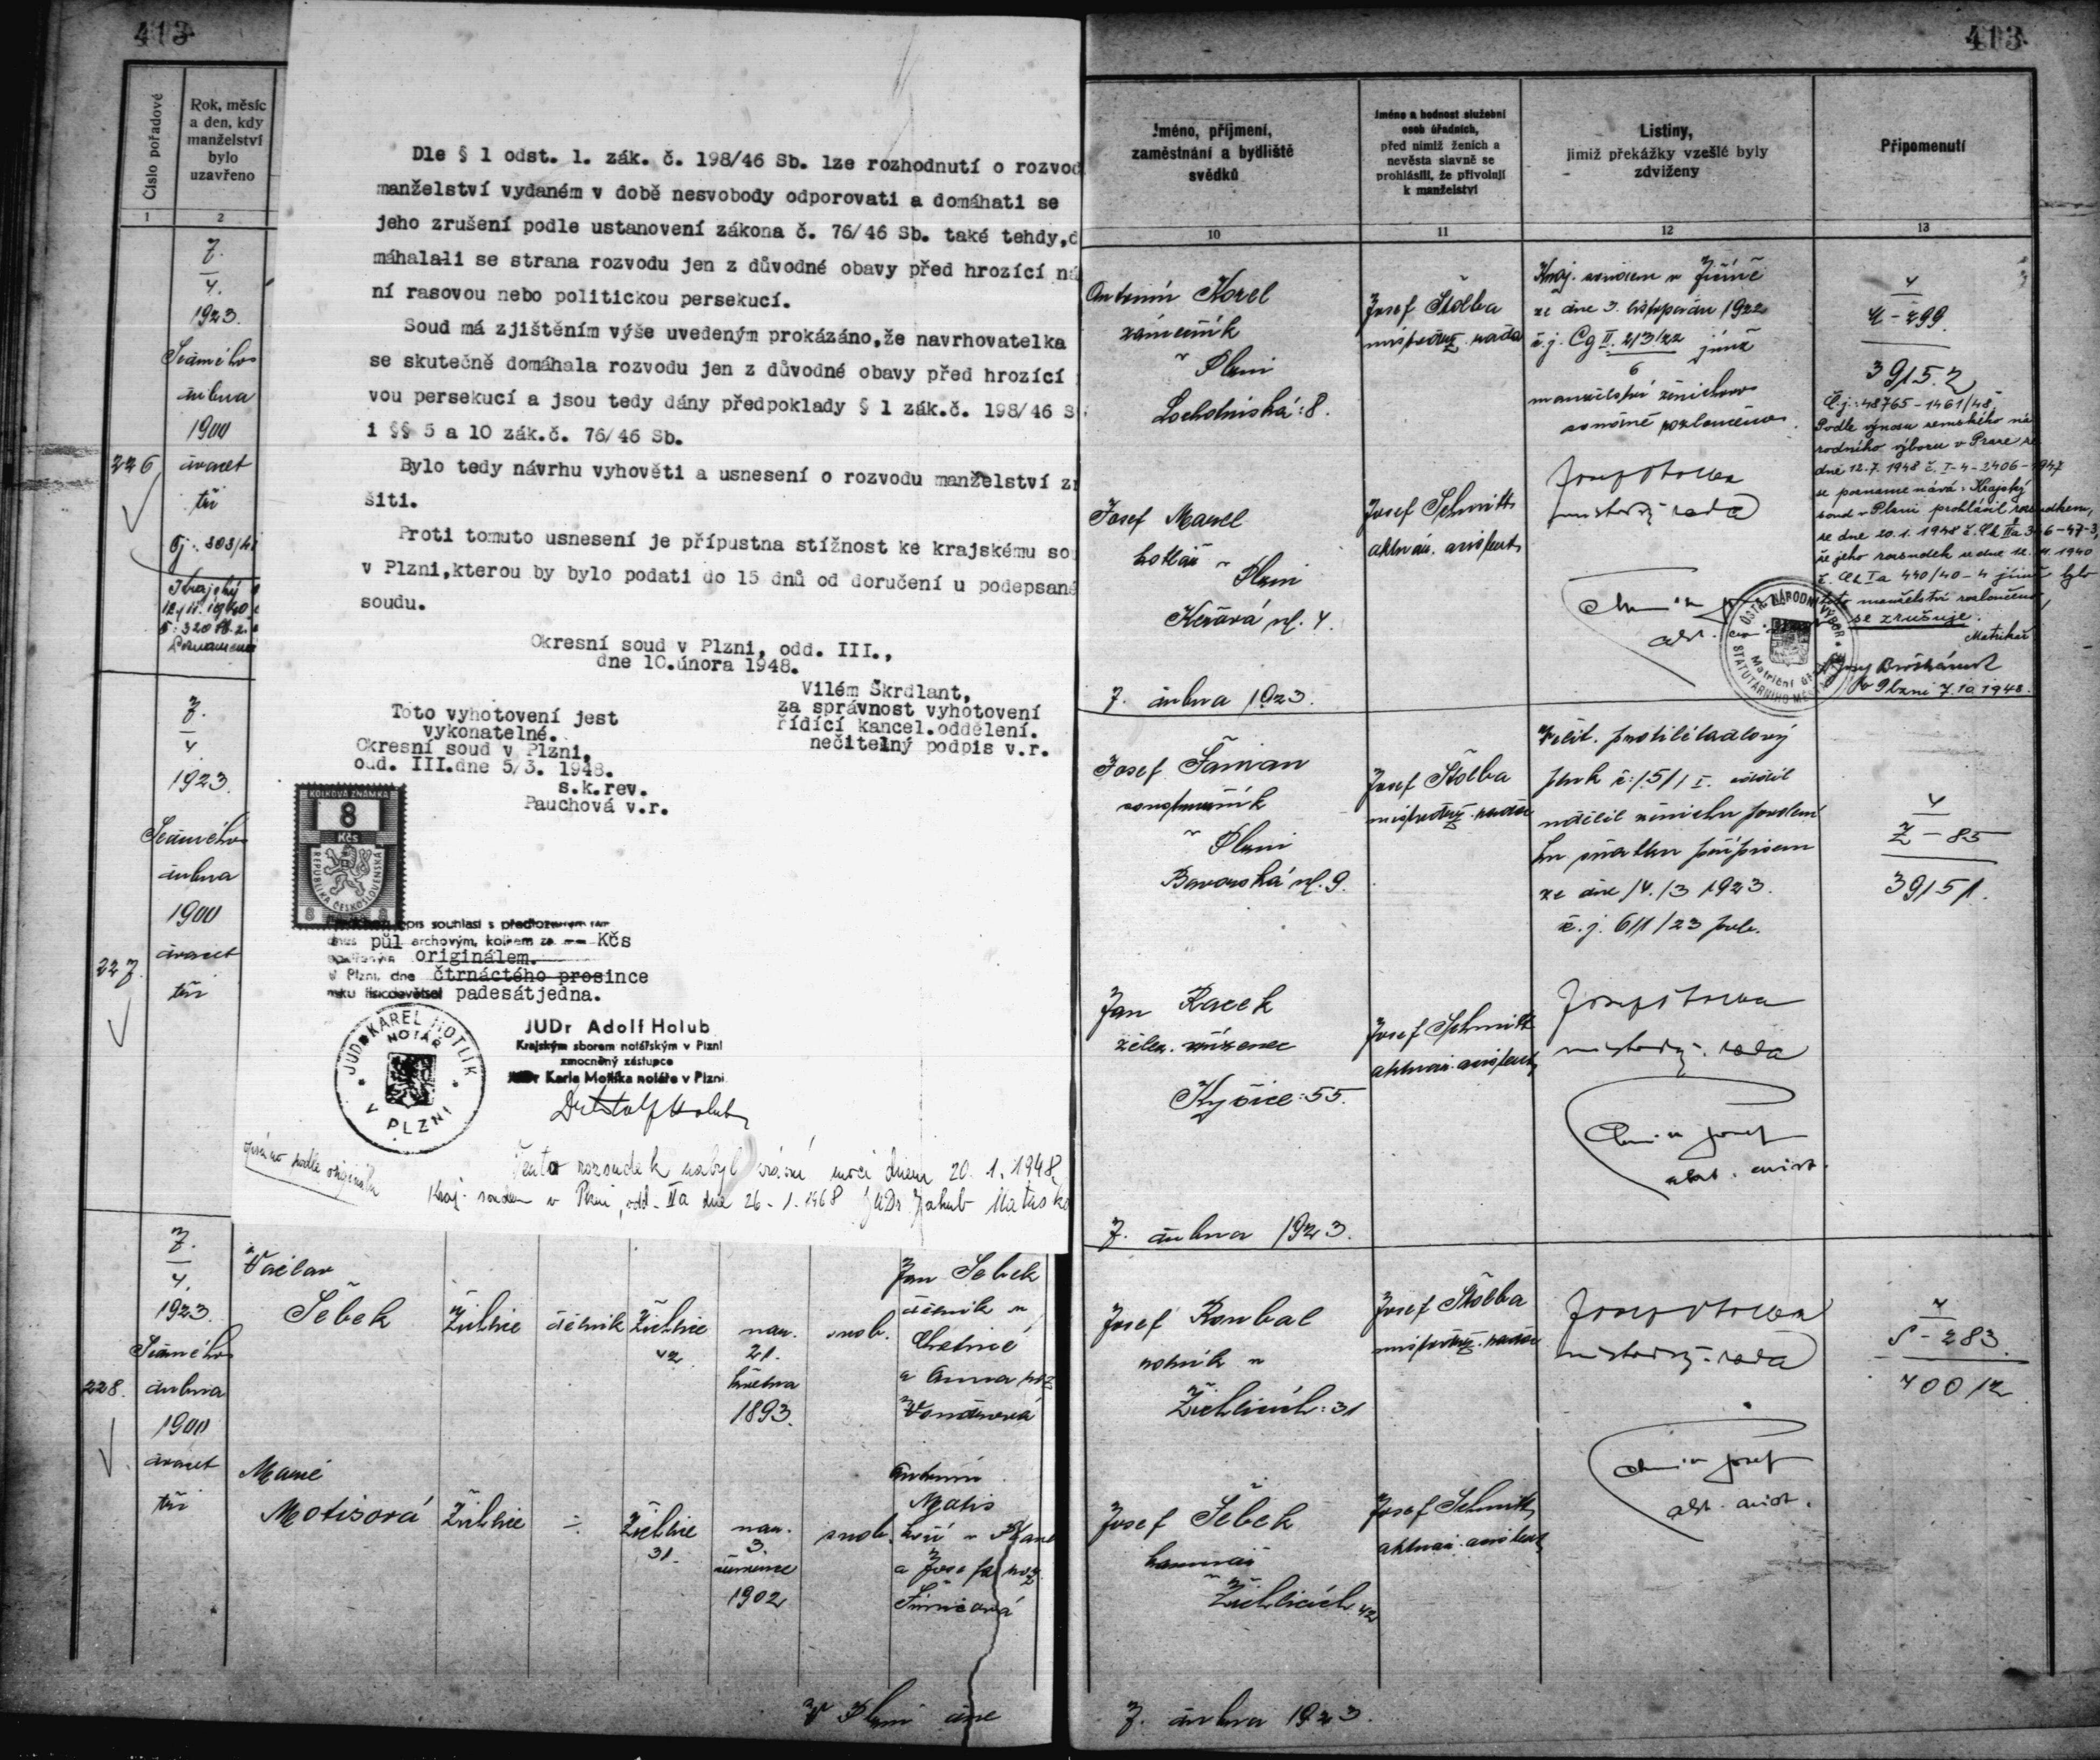 413
413
Číslo pořadové
Rok, měsíc
a den, kdy
manželství
bylo
uzavřeno
1
2
7.
4.
1923.
Sedmého
dubna
1900
226
dvacet
tři
Krajský
7.
4.
1923.
Sedmého
dubna
1900
227.
dvacet
tři
Dle § 1 odst. 1. zák. č. 198/46 Sb. lze rozhodnutí o rozvod
manželství vydaném v době nesvobody odporovati a domáhati se
jeho zrušení podle ustanovení zákona č. 76/46 Sb. také tehdy,d
máhalali se strana rozvodu jen z důvodné obavy před hrozící ná
ní rasovou nebo politickou persekucí.
Soud má zjištěním výše uvedeným prokázáno,že navrhovatelka
se skutečně domáhala rozvodu jen z důvodné obavy před hrozící
vou persekucí a jsou tedy dány předpoklady § 1 zák.č. 198/46 S
i §§ 5 a 10 zák.č. 76/46 Sb.
Bylo tedy návrhu vyhověti a usnesení o rozvodu manželství zr
šiti.
Proti tomuto usnesení je přípustna stížnost ke krajskému so
v Plzni,kterou by bylo podati do 15 dnů od doručení u podepsané
soudu.
Okresní soud v Plzni, odd. III.,
dne 10.února 1948.
Vilém Škrdlant,
za správnost vyhotovení
řídící kancel.oddělení.
nečitelný podpis v.r.
Toto vyhotovení jest
vykonatelné.
Okresní soud v Plzni,
odd. III.dne 5/3. 1948.
s.k.rev.
Pauchová v.r.
KOLKOVÁ ZNÁMKA
8
Kčs
REPUBLIKA ČESKOSLOVENSKÁ
8 8
opis souhlasí s předloženým
půl archovým, kolkem za Kčs
originálem.
v Plzni, dne čtrnáctého prosince
roku tisícdevětset padesátjedna.
JUDR KAREL HOTLÍK
NOTÁŘ
V PLZNI
JUDr Adolf Holub
Krajským sborem notářským v Plzni
zmocněný zástupce
JUDr Karla Hotlíka notáře v Plzni
Dr Adolf Holub
podle originálu
Tento rozsudek nabyl právní moci dnem 20. 1. 1948
Kraj. soudem v Plzni, odd. IIa dne 26. 1. 1968 JUDr Jakub
7.
4.
1923.
Sedmého
228.
dubna
1900
dvacet
tři
Václav
Šebek
Žichlice
dělník
Žichlice
42
nar.
21.
května
1893.
svob.
Jan Šebek
dělník v
a Anna roz.
Marie
Motisová
Žichlice
÷
Žichlice
31.
nar.
3.
července
1902
svob.
Antonín
Motis
a Josefa roz.
V Plzni dne
Jméno, příjmení,
zaměstnání a bydliště
svědků
Jméno a hodnost služební
osob úřadních,
před nimiž ženich a
nevěsta slavně se
prohlásili, že přivolují
k manželství
Listiny,
jimiž překážky vzešlé byly
zdviženy
Připomenutí
10
11
12
13
Antonín Korel
zámečník
v Plzni
Lochotínská: 8.
Josef Štolba
místodrž. rada
Kraj. soudem v Jičíně
ze dne 3. listopadu 1922
č. j. Cg II. 213/22 jímž
6
manželství ženichovo
rozloučeno.
Josef Štolba
místodrž. rada
4
299.
39152
Č.j.: 48765-1461/48
Podle výnosu zemského ná
rodního výboru v Praze ze
dne 12.7. 1948 č. I-4-2406-1947
se poznamenává: Krajský
soud v Plzni prohlásil rozsudkem,
ze dne 20.1. 1948 č. Ck IIa 346-47-3,
že jeho rozsudek ze dne 12. 11. 1940
č. Ck Ia 440/40-4 jímž bylo
toto manželství rozloučeno,
se zrušuje.
Matrikář
v Plzni 7.10.1948.
ÚSTŘ. NÁRODNÍ VÝBOR
STATUTÁRNÍHO MĚSTA
Josef
kotlář v Plzni
4.
Josef Schmitt
aktuár. assistent
7. dubna 1923.
Josef Šaman
v Plzni
Bavorská ul. 9.
Josef Štolba
místodrž. rada
pluk č: 151
udělil ženichu povolení
ku sňatku přípisem
ze dne 14./3 1923.
č. j. 611/23 prez.
4
Z-85
39151.
Jan Racek
želez. zřízenec
Kyšice: 55.
Josef Schmitt
aktuár. assistent
Josef Štolba
místodrž. rada
7. dubna 1923.
Josef Roubal
rolník v
Žichlicích: 31
Josef Štolba
místodrž. rada
Josef Štolba
místodrž. rada
4
S-283.
40012
Josef Šebek
v
Žichlicích 42
Josef Schmitt
aktuár. assistent
7. dubna 1923.